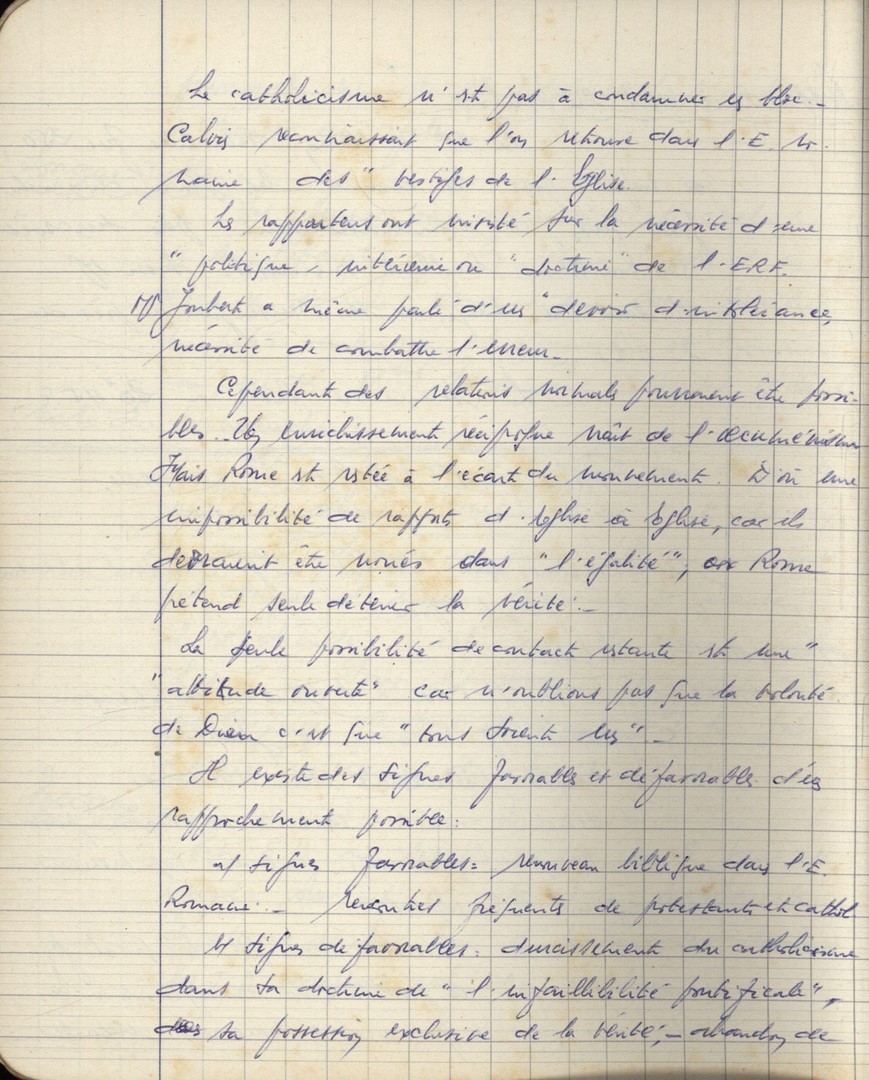 Le catholicisme n'est pas à condamner en bloc.-
Calvin reconnaissait que l'on retrouve dans l'E. Ro-
maine des " vestiges de l'Eglise.
Les rapporteurs ont insisté sur la nécessité d'une
" politique, intérieure ou "doctrine" de l'ERF.
Mr Joubert a même parlé d'un "devoir d'intolérance,
nécessité de combattre l'erreur.-
Cependant des relations normales pourraient être possi-
bles. Un enrichissement réciproque naît de l'oecuménisme
Mais Rome est restée à l'écart du mouvement. D'où une
impossibilité de rapports d'Eglise à Eglise, car ils
devraient être noués dans "l'égalité", or Rome
prétend seule détenir la vérité.-
La seule possibilité de contact restante est une "
"attitude ouverte" car n'oublions pas que la volonté
de Dieu c'est que "tous soient un".-
Il existe des signes favorables et défavorables d'un
rapprochement possible:
a/ signes favorables: renouveau biblique dans l'E.
Romaine.- rencontres fréquentes de protestants et cathol
b/ signes défavorables: durcissement du catholicisme
dans sa doctrine de "l'infaillibilité pontificale",
sa possession exclusive de la vérité,- abandon de